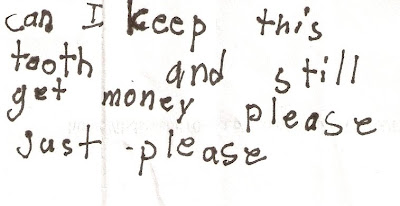 can I keep this
tooth and still
get money please
just please